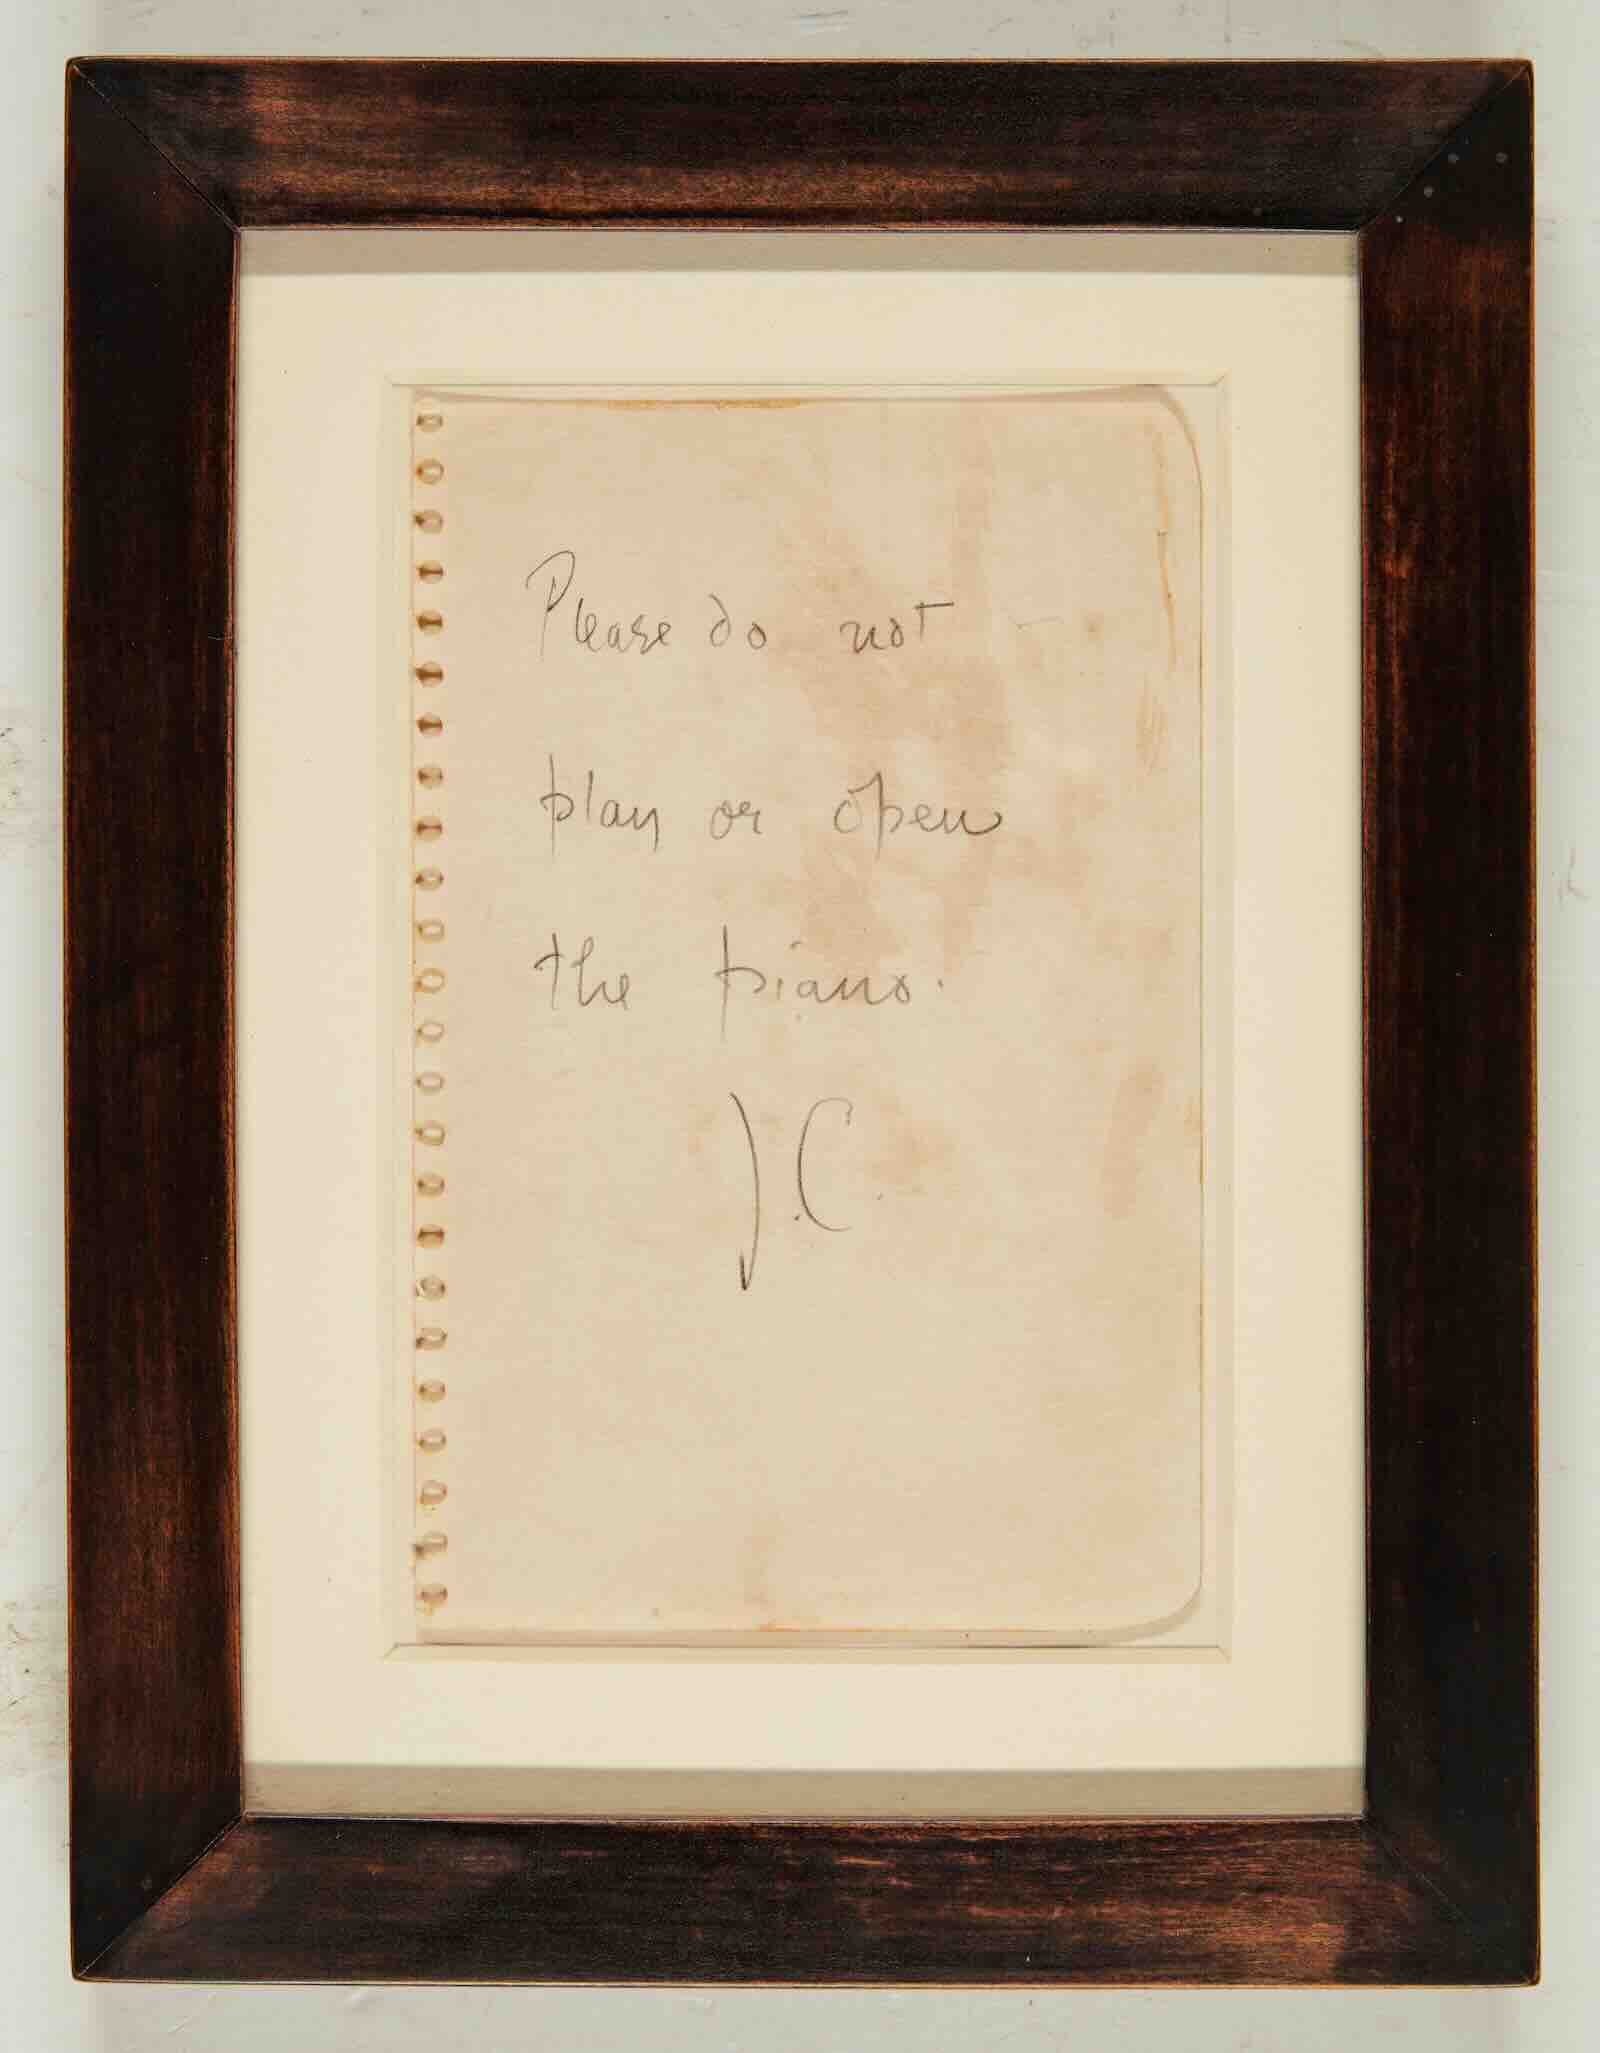 Please do not
play or open
the piano.
J.C.